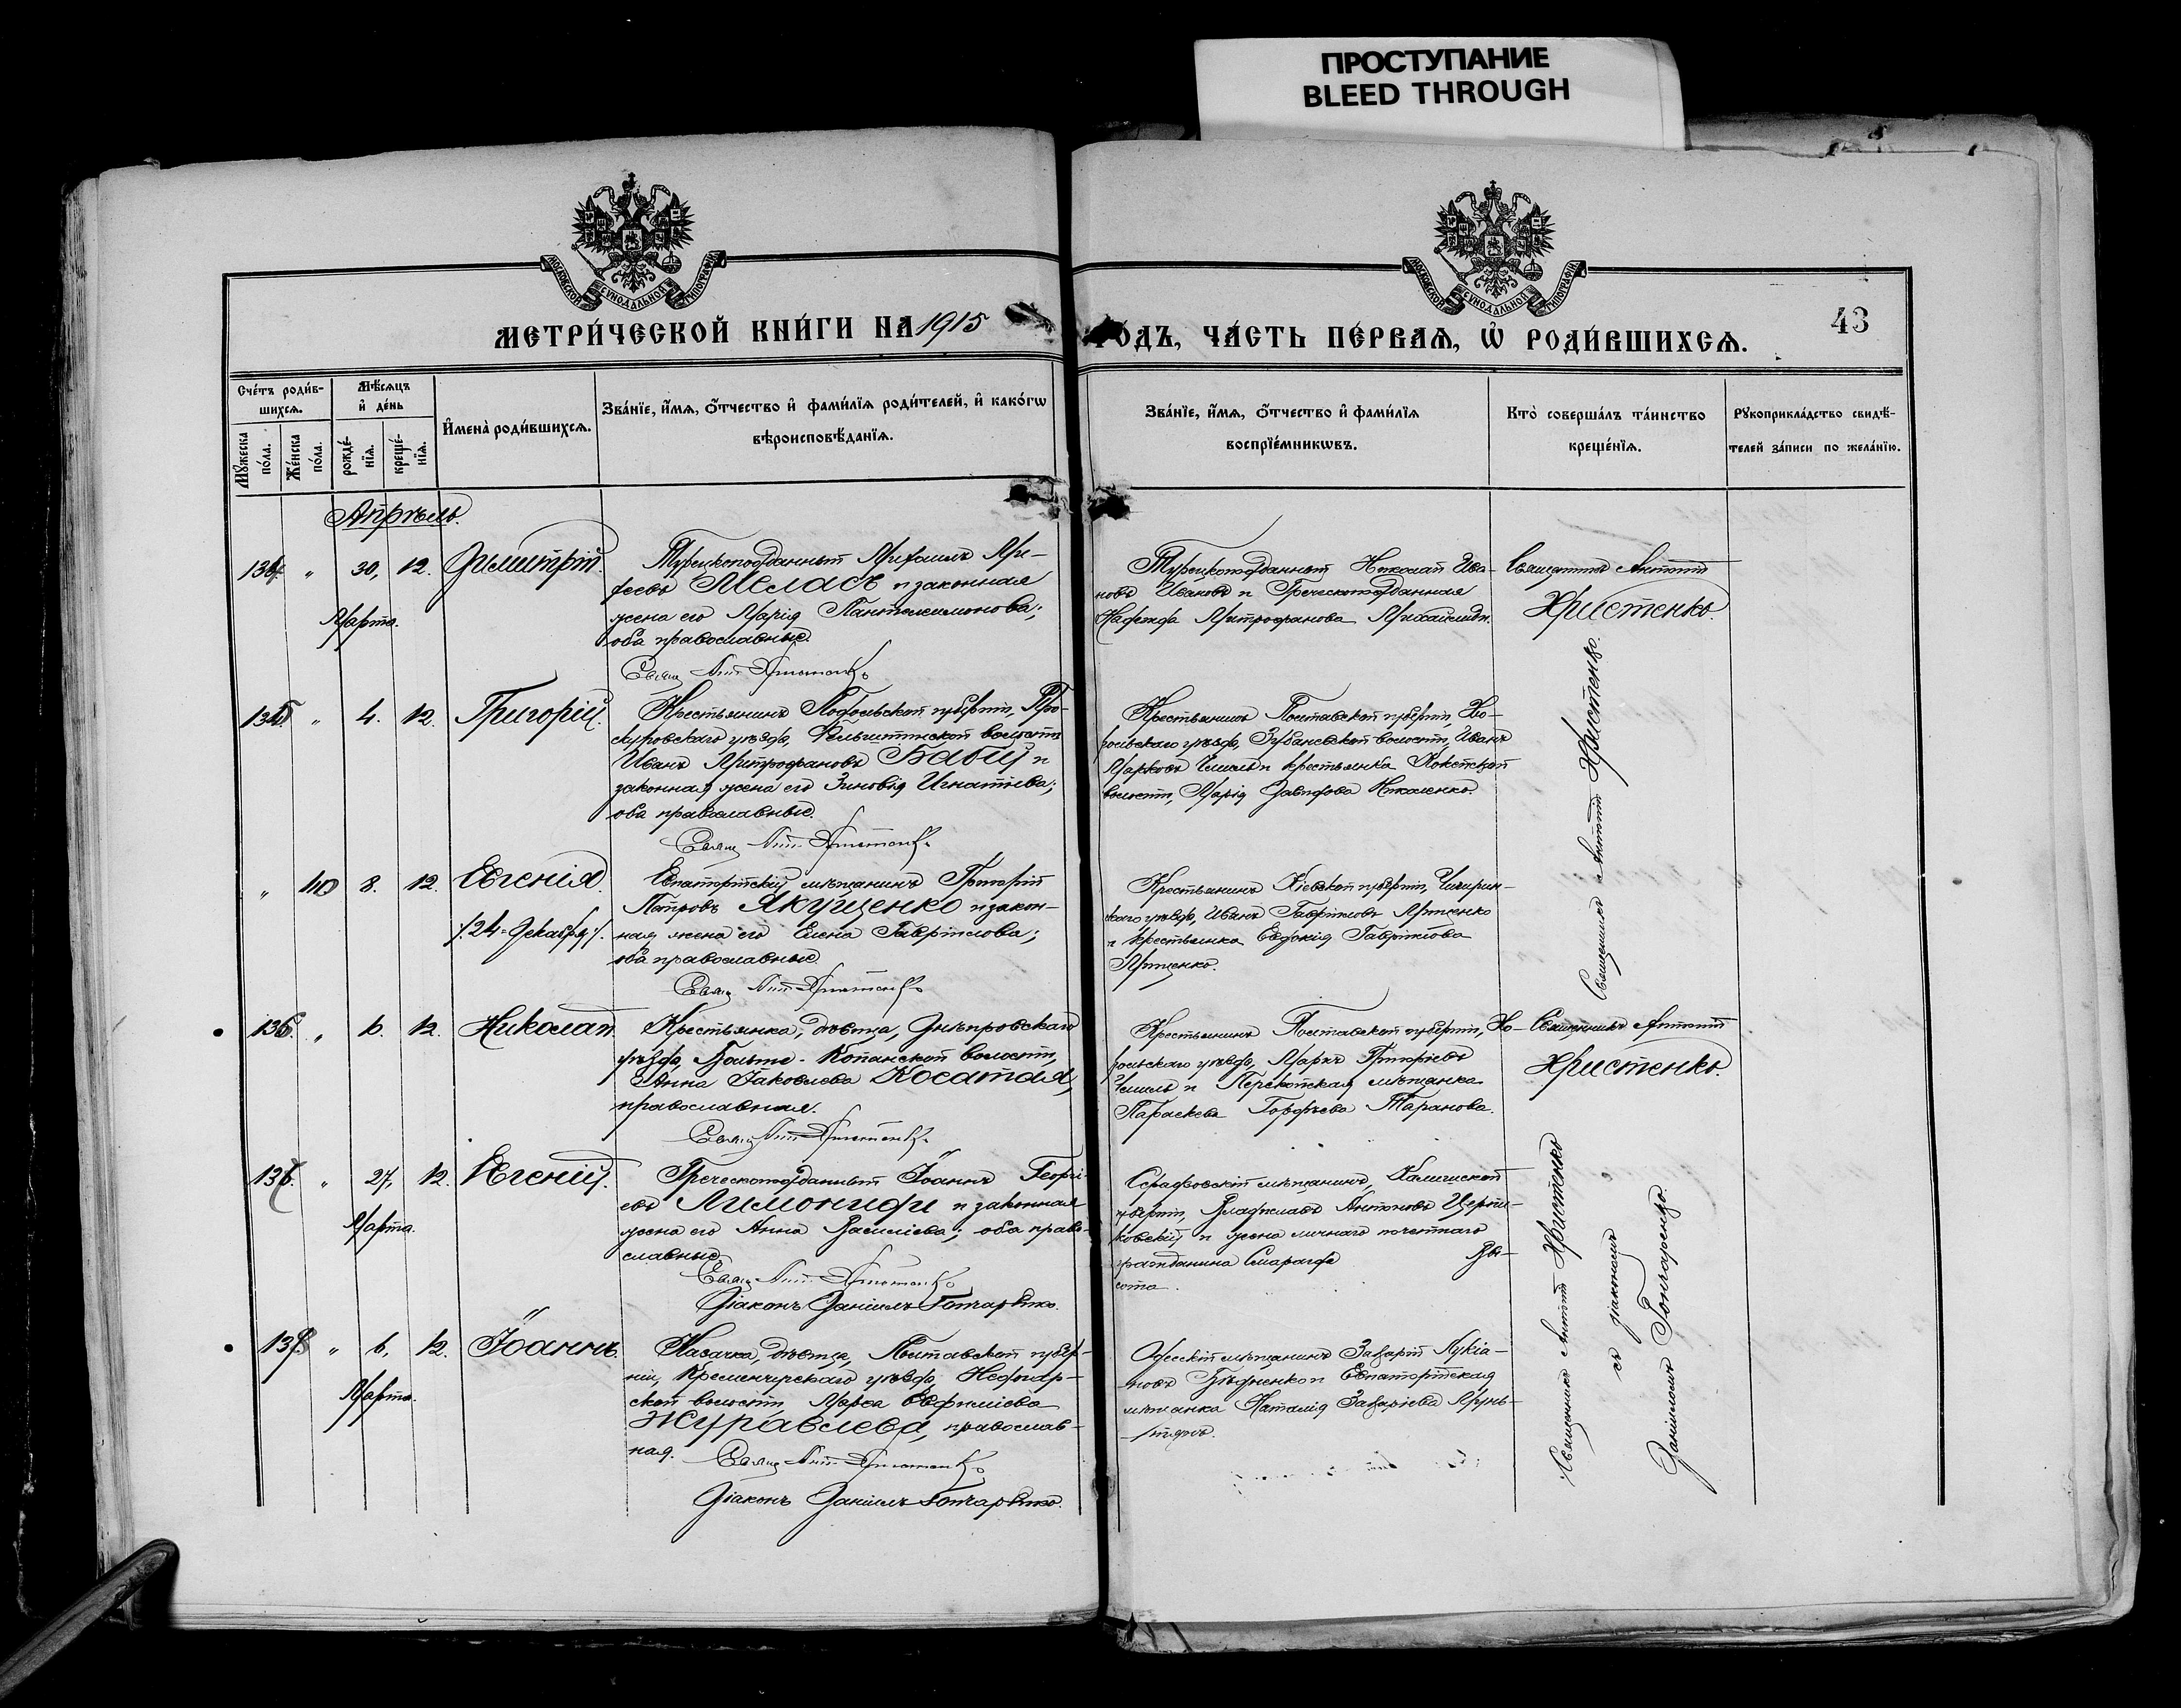 ПРОСТУПАНИЕ
BLEED THROUGH
МОСКОВСКОЙ СУНОДАЛЬНОЙ ТИПОГРАФІИ
МОСКОВСКОЙ СУНОДАЛЬНОЙ ТИПОГРАФІИ
МЕТРИ́ЧЕСКОЙ КНИ́ГИ НА 1915
ГО́ДЪ, ЧА́СТЬ ПЕ́РВАѦ, Ѡ҆ РОДИ́ВШИХСѦ.
43
Сче́тъ роди́в-
шихсѧ.
Мужеска по́ла.
Же́нска по́ла.
Мѣ́сѧцъ
и҆ де́нь
рожде́-
нїѧ.
креще́-
нїѧ.
И҆мена̀ роди́вшихсѧ.
Зва́нїе, и҆́мѧ, ѻ҆́тчество и҆ фами́лїѧ роди́телей, и҆ како́гѡ
вѣроисповѣ́данїѧ.
Зва́нїе, и҆́мѧ, ѻ҆́тчество и҆ фами́лїѧ
воспрїе́мникѡвъ.
Кто̀ соверша́лъ та́инство
креще́нїѧ.
Рꙋкоприкла́дство свидѣ́-
телей за́писи по жела́нїю.
Апрѣль.
134 " 30, 12. Димитрій.
Марта.
Турецкоподданный
Меласъ и законная
жена его Марія Пантелеимонова;
оба православные.
Турецкоподданный Николай Ива-
новъ Ивановъ и Греческоподданная
Надежда Митрофанова
Священникъ Антоній
Христенко.
135 " 4. 12. Григорій.
Крестьянинъ Подольской губерніи, Про-
скуровскаго уѣзда, волости
Иванъ Митрофановъ Бабій и
законная жена его Зиновія Игнатіева;
оба православные.
Крестьянинъ Полтавской губерніи, Хо-
рольскаго уѣзда, волости, Иванъ
Марковъ и крестьянка
волости, Марія Давидова Николенко.
Священникъ Антоній Христенко.
" 40 8. 12. Евгенія.
/. 24 = Декабря ./.
Евпаторійскій мѣщанинъ Григорій
Петровъ Якущенко и закон-
ная жена его Елена Гавріилова;
оба православные.
Крестьянинъ Кіевской губерніи, Чигирин-
скаго уѣзда, Иванъ Гавріиловъ
и крестьянка Евдокія Гавріилова
136. " 6. 12. Николай.
Крестьянка, дѣвица, Днѣпровскаго
уѣзда, Больше-Копанской волости,
Анна Іаковлева Косатая,
православная.
Крестьянинъ Полтавской губерніи, Хо-
рольскаго уѣзда, Маркъ Григорьевъ
и Перекопская мѣщанка
Параскева Гордѣева Таранова.
Священникъ Антоній
Христенко.
137. " 27, 12. Евгеній.
Марта.
Греческоподданный Іоаннъ Георгі-
евъ Лимониди и законная
жена его Анна Василіева; оба право-
славные.
Діаконъ Даніилъ Гончаренко.
мѣщанинъ, Калишской
губерніи, Владиславъ Антоновъ
ковскій и жена личнаго почетнаго
гражданина Смарагда Вы-
сота.
Священникъ Антоній Христенко
съ діакономъ
Даніиломъ Гончаренко.
138 " 6, 12. Іоаннъ.
Марта.
Казачка, дѣвица, Полтавской губер-
ніи, Кременчугскаго уѣзда,
ской волости, Марѳа Евфиміева
Журавлева, православ-
ная.
Діаконъ Даніилъ Гончаренко.
Одесскій мѣщанинъ Захарій Лукіа-
новъ и Евпаторійская
мѣщанка Наталія Захаріева